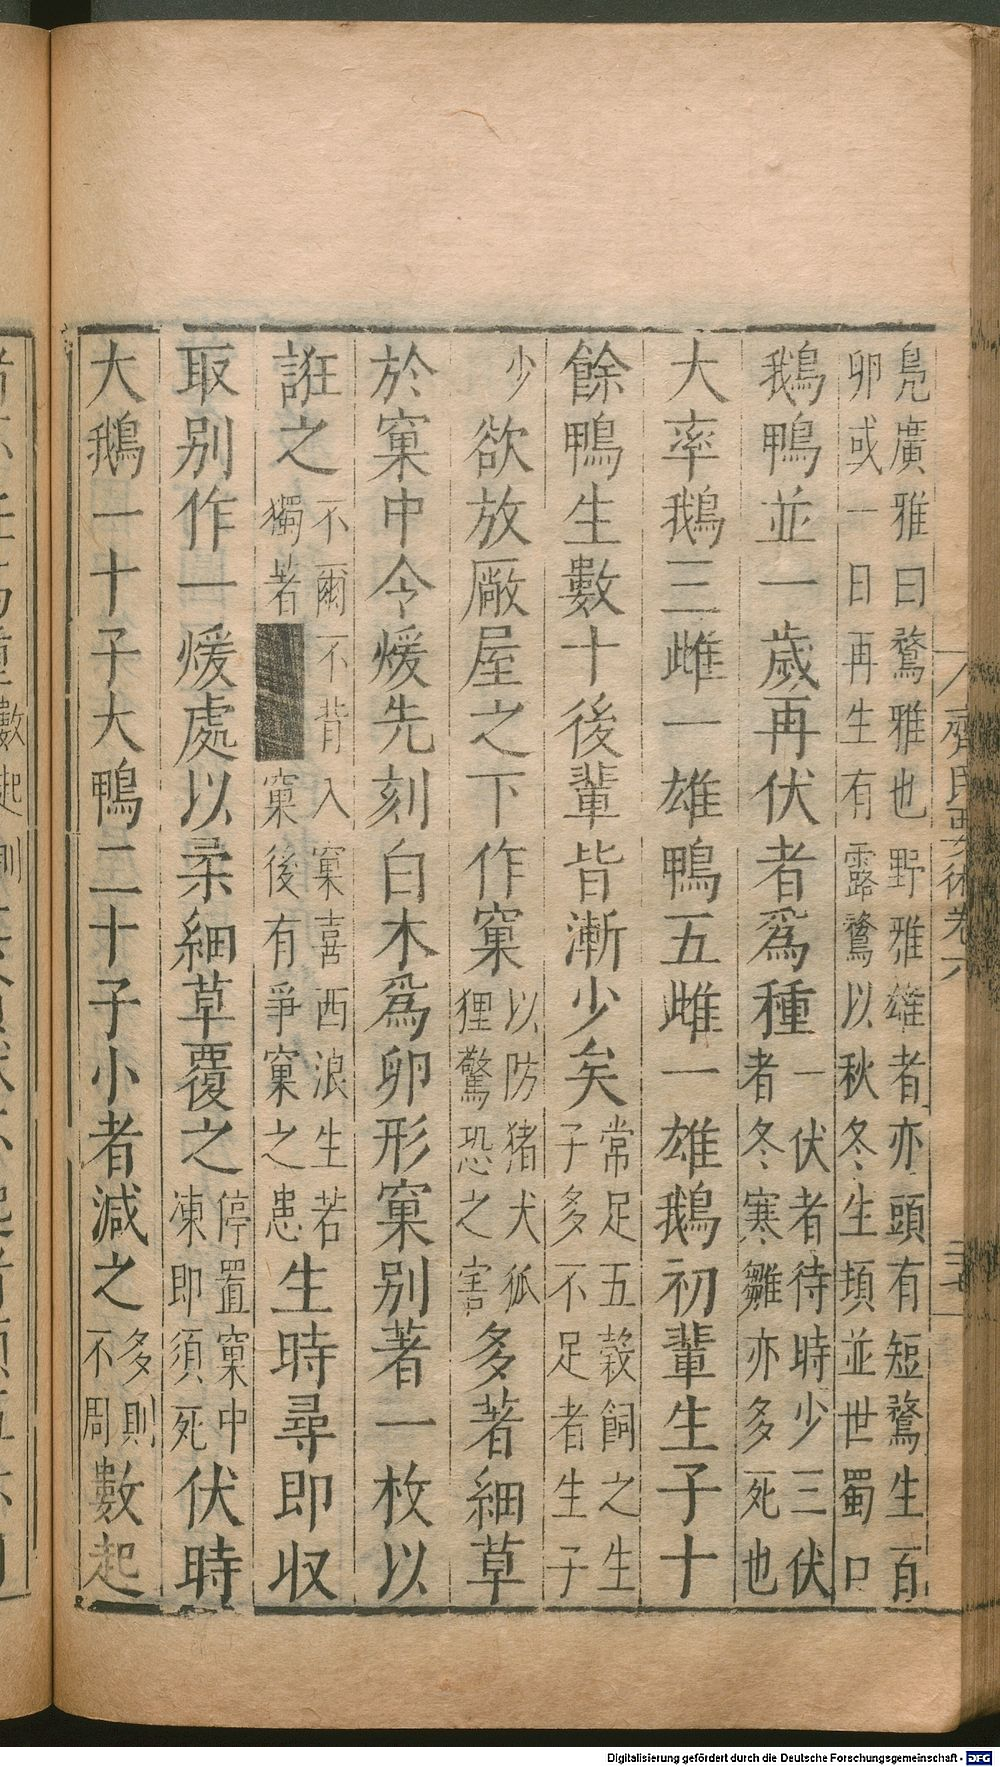 鳧廣雅曰鶩雅也野雅雄者亦頭有短鶩生百
卵或一日再生有露鶩以秋冬生㘽並世蜀口
鵝鴨並一歲再伏者爲種一伏者待時少三伏
者冬寒雛亦多死也
大率鵝三雌一雄鴨五雌一雄鵝初輩生子十
餘鴨生數十後輩皆漸少矣常足五穀飼之生
子多不足者生子
少欲放廠屋之下作窠以防猪犬狐
狸驚恐之害多著細草
於窠中令煖先刻白木爲卵形窠別著一枚以
誑之不爾不背入窠喜西浪生若
獨著窠後有爭窠之患生時尋即收
取別作一煖處以柔細草覆之停置窠中
凍即須死伏時
大鵝一十子大鴨二十子小者減之多則
不周數起
齊民要術卷六
Digitalisierung gefördert durch die Deutsche Forschungsgemeinschaft - DFG